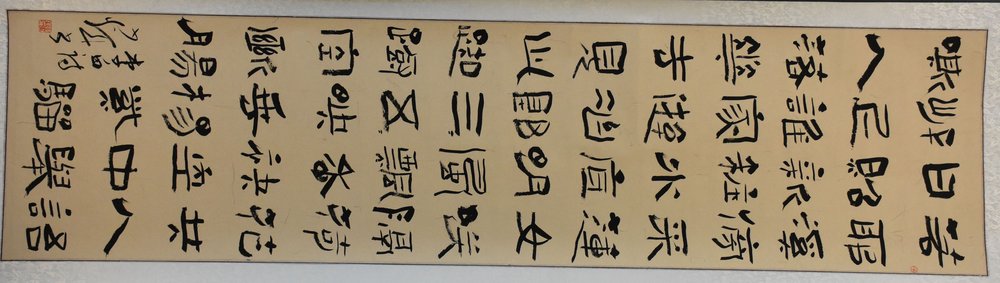 若耶溪傍采蓮女笑隔荷花共人語
日照新粧水底明風飄香袂空中舉
岸上誰家遊冶郎三三五五映垂楊紫騮
嘶入落花去見此踟躕空斷腸
李白詩